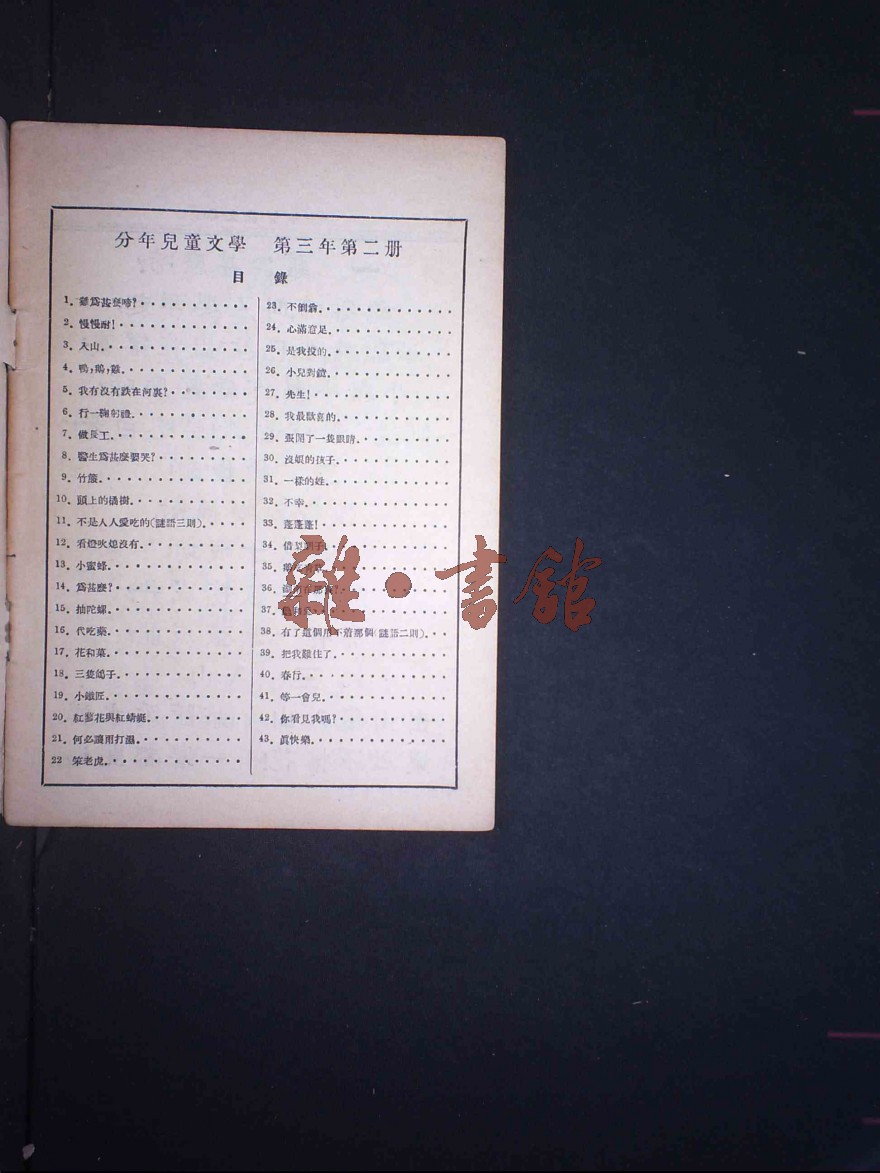 分年兒童文學 第三年第二册
目 錄
1. 爲甚麽啼?
2. 慢慢耐!
3. 入山.
4. 鴨,鵝,雞.
5. 我有沒有跌在河裏?
6. 行一鞠躬禮.
7. 做長工.
8. 醫生爲甚麽要哭?
9. 竹籃.
10. 頭上的橘樹.
11. 不是人人愛吃的(謎語三則).
12. 看燈吹熄沒有.
13. 小蜜蜂.
14. 爲甚麽?
15. 抽陀螺.
16. 代吃藥.
17. 花和葉.
18. 三隻鴿子.
19. 小鐵匠.
20. 紅蓼花與紅蜻蜓.
21. 何必讓雨打濕.
22 笨老虎.
23. 不倒翁.
24. 心滿意足.
25. 是我投的.
26. 小兒對鏡.
27. 先生!
28. 我最歡喜的.
29. 張開了一隻眼睛.
30. 沒娘的孩子.
31. 一樣的姓.
32. 不幸.
33. 蓬蓬蓬!
34. 借
35.
36.
37.
38. 有了這個用不着那個(謎語二則).
39. 把我難住了.
40. 春行.
41. 等一會兒.
42. 你看見我嗎?
43. 眞快樂.
雜·書館